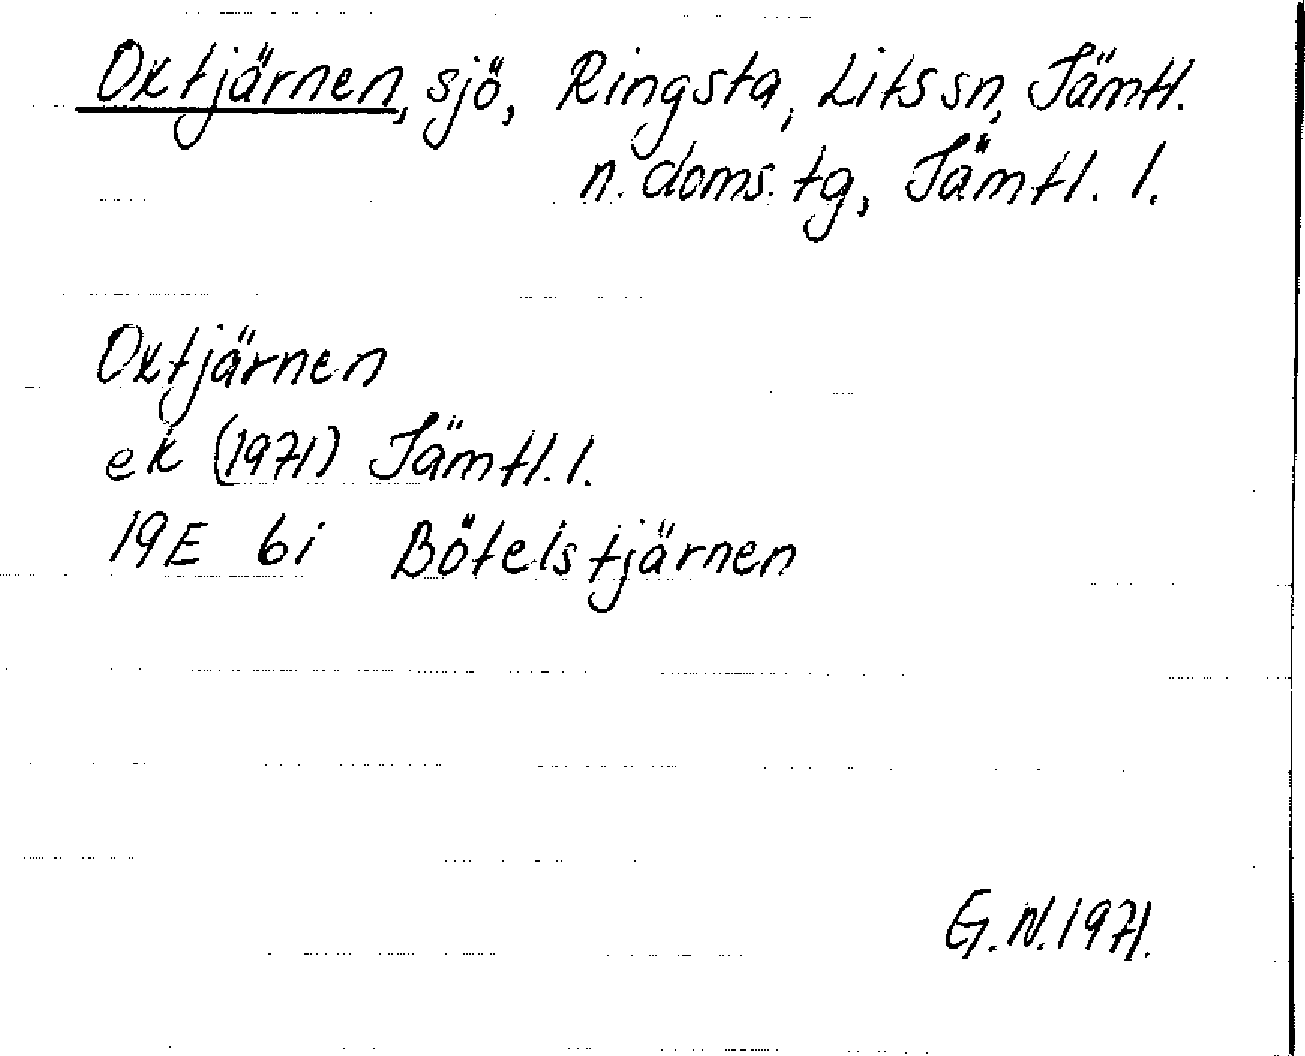 Oxtjärnen, sjö, Ringsta, Lits sn, Jämtl.
n. doms. tg, Jämtl. l.
Oxtjärnen
ek (1971) Jämtl. l.
19E 6i Bötelstjärnen
G. N. 1971.